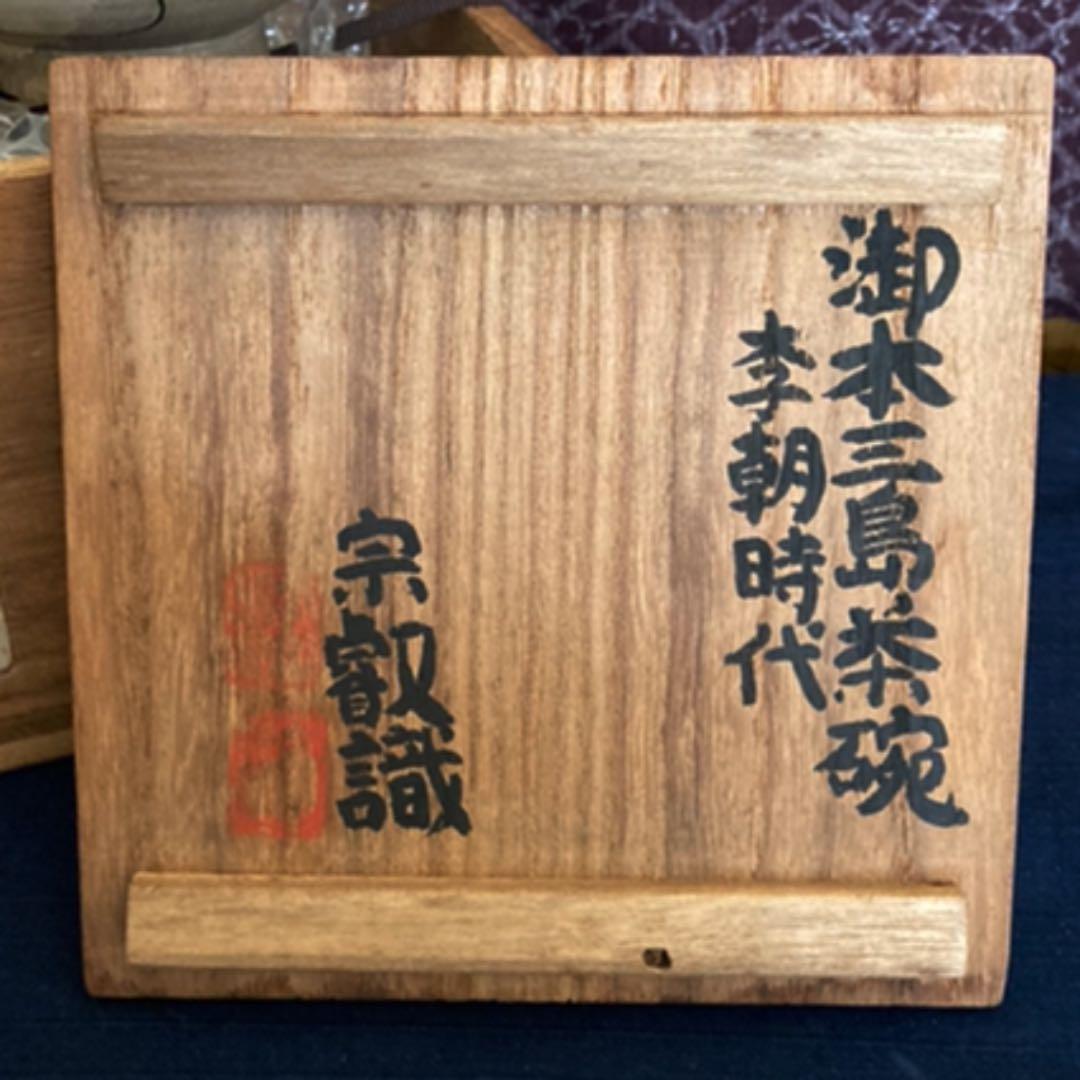 御本三島茶碗
李朝時代
宗叡識